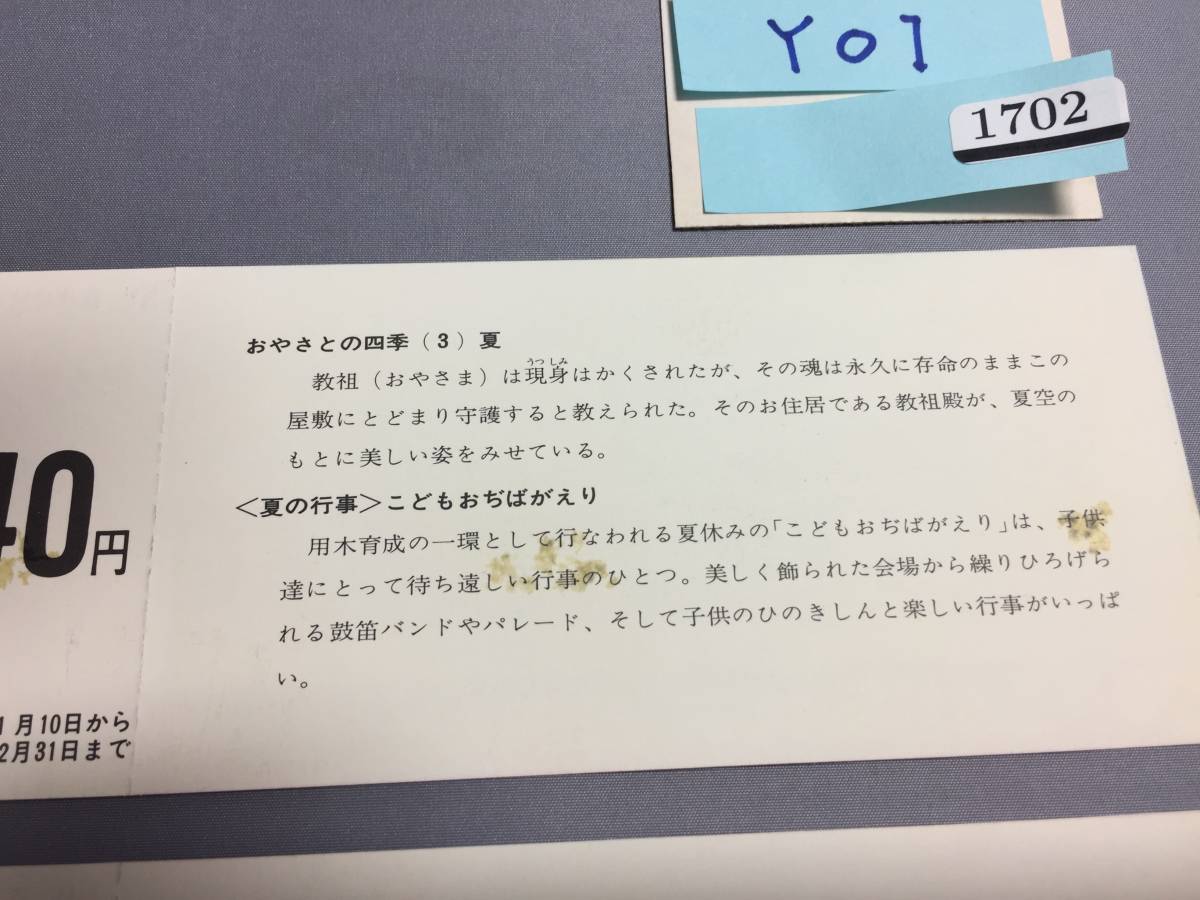 Y01
1702
おやさとの四季(3)夏
教祖(おやさま)は現身はかくされたが、その魂は永久に存命のままこの
うつしみ
屋敷にとどまり守護すると教えられた。そのお住居である教祖殿が、夏空の
もとに美しい姿をみせている。
<夏の行事>こどもおぢばがえり
用木育成の一環として行なわれる夏休みの「こどもおぢばがえり」は、子供
達にとって待ち遠しい行事のひとつ。美しく飾られた会場から繰りひろげら
れる鼓笛バンドやパレード、そして子供のひのきしんと楽しい行事がいっぱ
い。
40円
1月10日から
2月31日まで